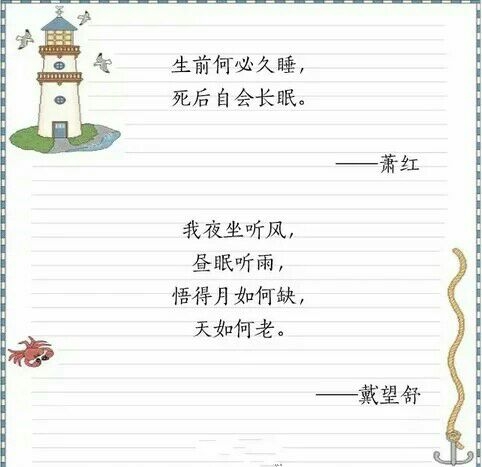 生前何必久睡，
死后自会长眠。
——萧红
我夜坐听风，
昼眠听雨，
悟得月如何缺，
天如何老。
——戴望舒